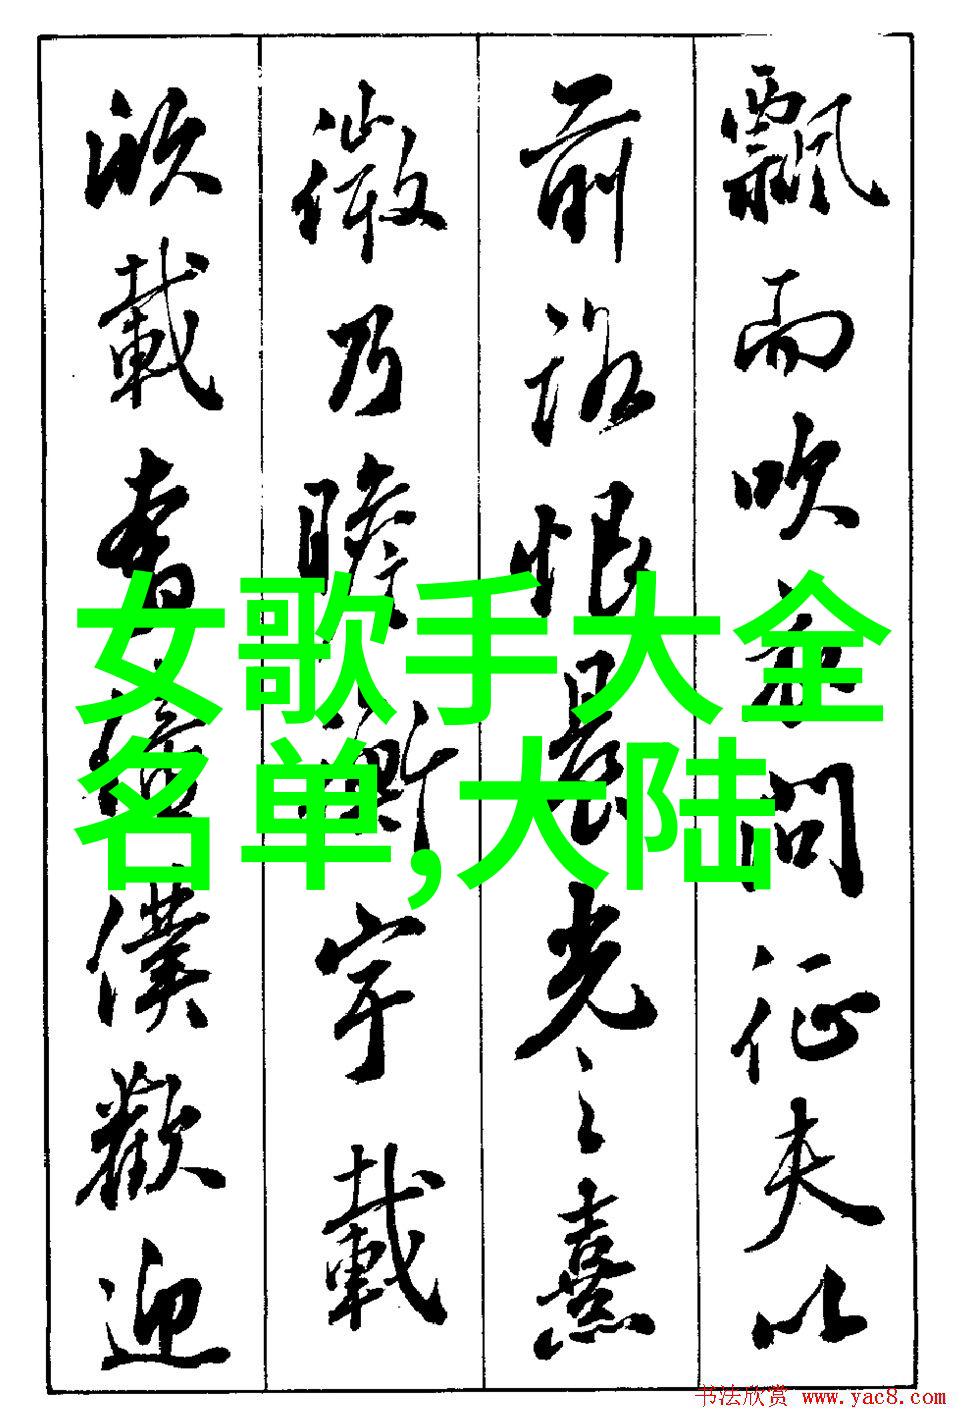 飄而吹衣問征夫以
前路恨晨光之熹
微乃瞻衡宇載
欣載奔僮僕歡迎
女歌手大全
名单,大陆
书法欣赏 www.yac8.com